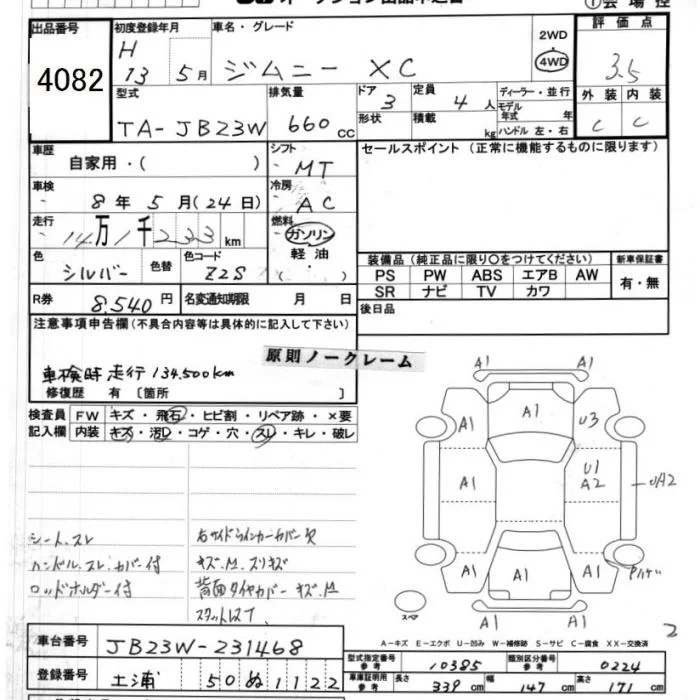 出品番号 初度登録年月 車名・グレード ①会場控
4082
H 13 5月 ジムニー XC
2WD
4WD
評価点
3.5
型式 排気量 ドア 3 定員 4人 ディーラー・並行
TA-JB23W 660cc 形状 積載 kg モデル年式 年 ハンドル 左・右
外装 内装
C C
車歴 自家用・( ) シフト MT セールスポイント(正常に機能するものに限ります)
車検 8年 5月(24日) 冷房 AC
走行 14万1千233km 燃料 ガソリン 軽油 ( )
色 シルバー 色替 色コード Z2S
装備品(純正品に限り○をつけてください) 新車保証書
PS PW ABS エアB AW 有・無
SR ナビ TV カワ
R券 8,540円 名変通知期限 月 日 後日品
注意事項申告欄(不具合内容等は具体的に記入して下さい)
原則ノークレーム
車検時走行134,500km
修復歴 有〔箇所 〕
検査員 FW キズ・飛石・ヒビ割・リペア跡・×要
記入欄 内装 キズ・汚れ・コゲ・穴・スレ・キレ・破レ
A1 A1
A1 A1 U3
A1 A1 U1 A2 UA2
A1 A1 A1
スペア
シート、スレ 右サイドウインカーカバー欠
ハンドル、スレ、カバー付 キズ、M、スリキズ
ロッドホルダー付 背面タイヤカバー キズ、M
スタットレス T
2
A-キズ E-エクボ U-凹み W-補修跡 S-サビ C-腐食 XX-交換済
車台番号 JB23W-231468
型式指定番号 参考 10385 類別区分番号 参考 0224
登録番号 土浦 50 ぬ 1122
車庫証明用 参考 長さ 339cm 幅 147cm 高さ 171cm